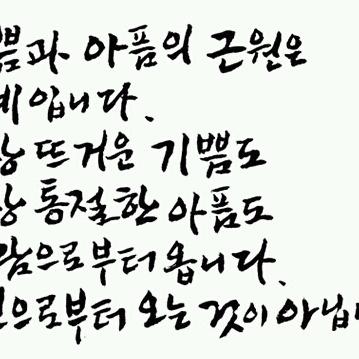 쁨과 아픔의 근원은
계입니다.
상 뜨거운 기쁨도
상 통절한 아픔도
람으로부터 옵니다.
으로부터 오는 것이 아닙